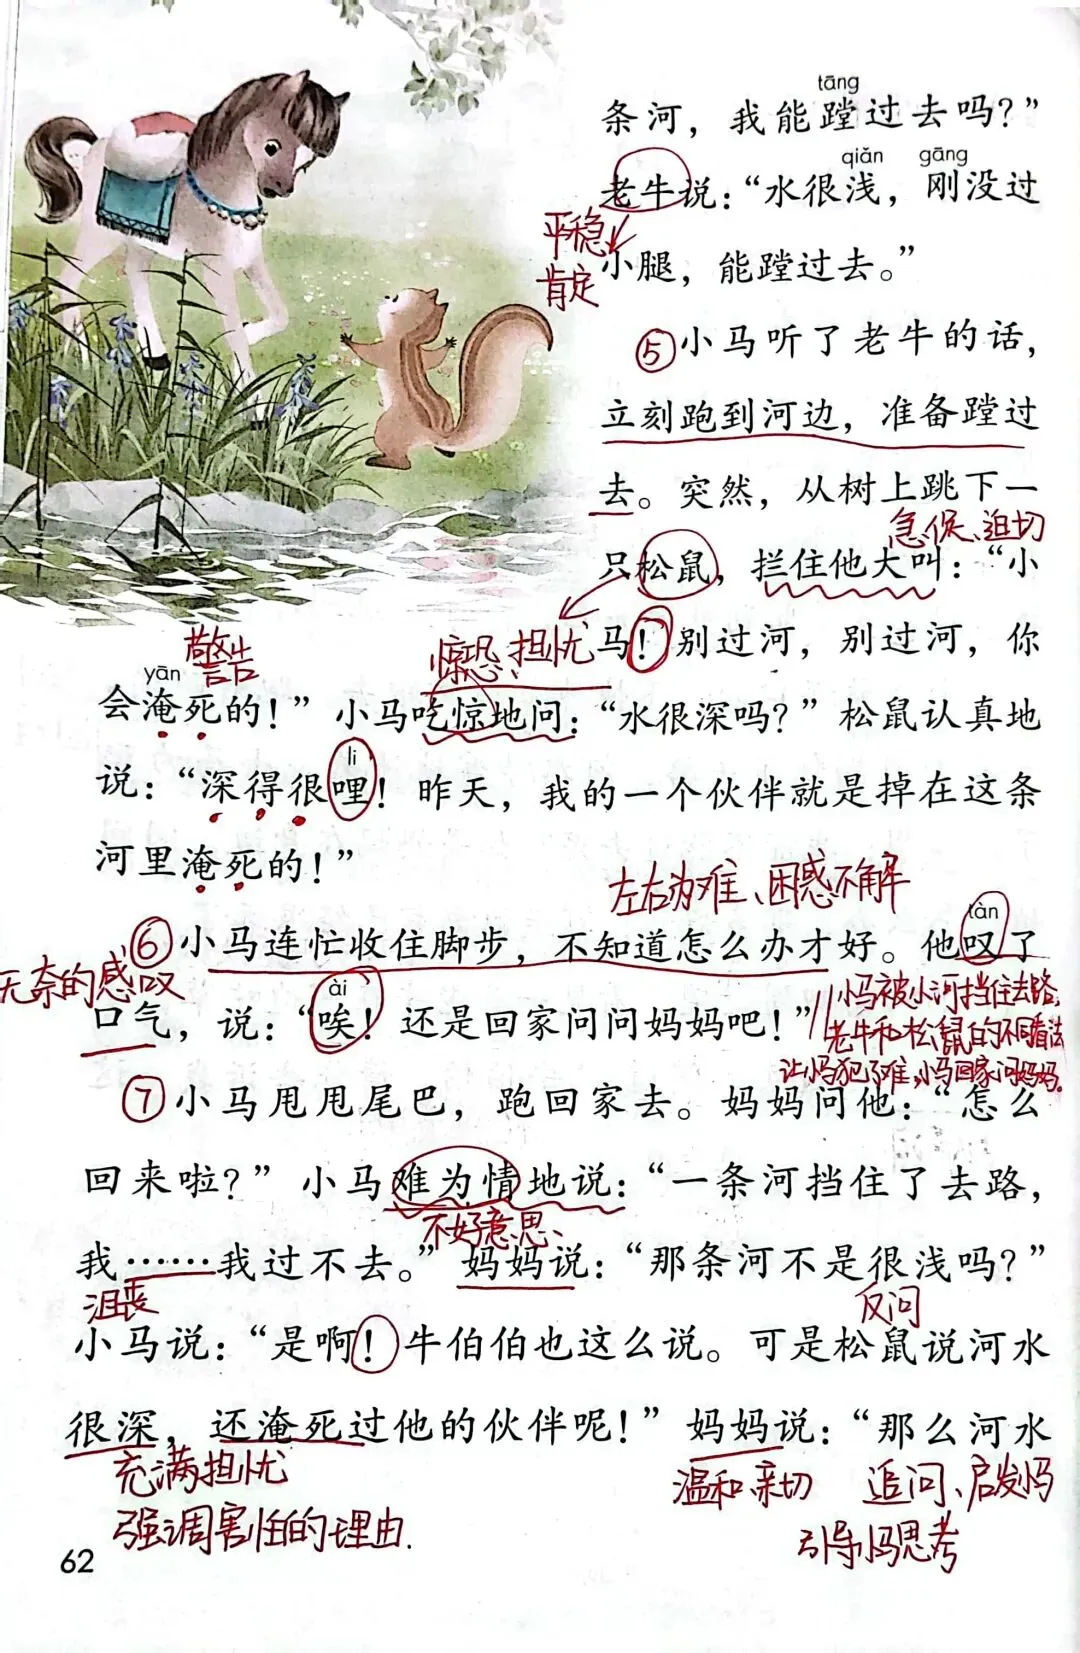 tāng
条河，我能蹚过去吗？”
qiǎn gāng
老牛说：“水很浅，刚没过
平稳
肯定
小腿，能蹚过去。”
⑤小马听了老牛的话，
立刻跑到河边，准备蹚过
去。突然，从树上跳下一
急促、迫切
只松鼠，拦住他大叫：“小
警告
惊恐、担忧
马！别过河，别过河，你
yān
会淹死的！”小马吃惊地问：“水很深吗？”松鼠认真地
li
说：“深得很哩！昨天，我的一个伙伴就是掉在这条
河里淹死的！”
左右为难、困惑不解
tàn
⑥小马连忙收住脚步，不知道怎么办才好。他叹了
无奈的感叹
ài
口气，说：“唉！还是回家问问妈妈吧！”
小马被小河挡住去路，
老牛和松鼠的不同看法
让小马犯了难，小马回家问妈妈。
⑦小马甩甩尾巴，跑回家去。妈妈问他：“怎么
回来啦？”小马难为情地说：“一条河挡住了去路，
不好意思、
我……我过不去。”妈妈说：“那条河不是很浅吗？”
沮丧
反问
小马说：“是啊！牛伯伯也这么说。可是松鼠说河水
很深，还淹死过他的伙伴呢！”妈妈说：“那么河水
充满担忧
温和、亲切
追问、启发小马
强调害怕的理由.
引导小马思考
62